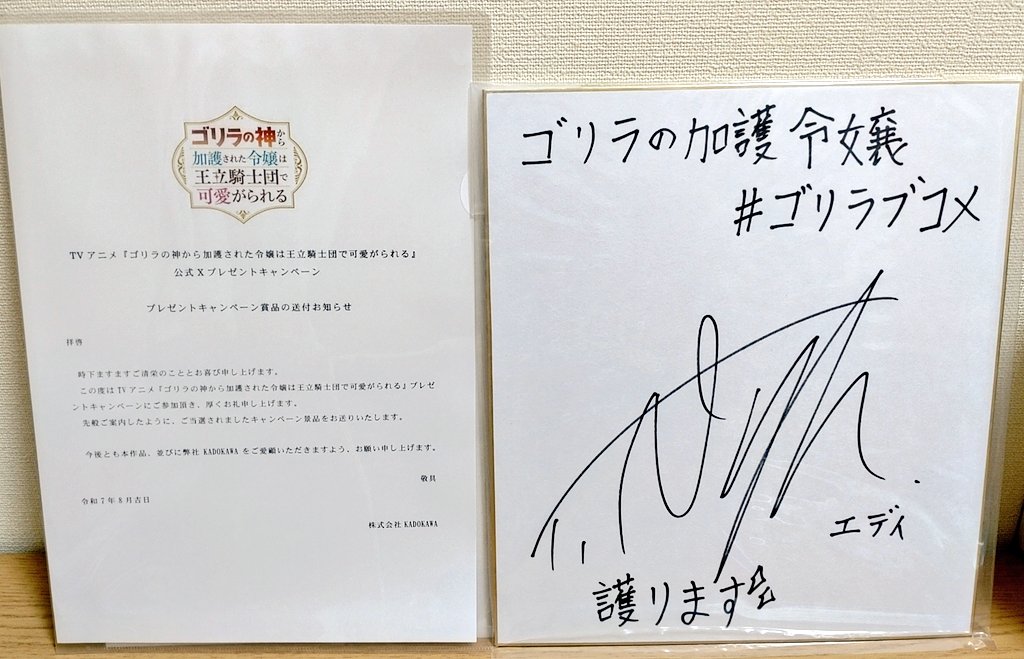 ゴリラの神から
加護された令嬢は
王立騎士団で
可愛がられる
TVアニメ『ゴリラの神から加護された令嬢は王立騎士団で可愛がられる』
公式Xプレゼントキャンペーン
プレゼントキャンペーン賞品の送付お知らせ
拝啓
時下ますますご清栄のこととお喜び申し上げます。
この度はTVアニメ『ゴリラの神から加護された令嬢は王立騎士団で可愛がられる』プレゼ
ントキャンペーンにご参加頂き、厚くお礼申し上げます。
先般ご案内したように、ご当選されましたキャンペーン景品をお送りいたします。
今後とも本作品、並びに弊社KADOKAWAをご愛顧いただきますよう、お願い申し上げます。
敬具
令和7年8月吉日
株式会社KADOKAWA
ゴリラの加護令嬢
#ゴリラブコメ
エディ
護ります☆